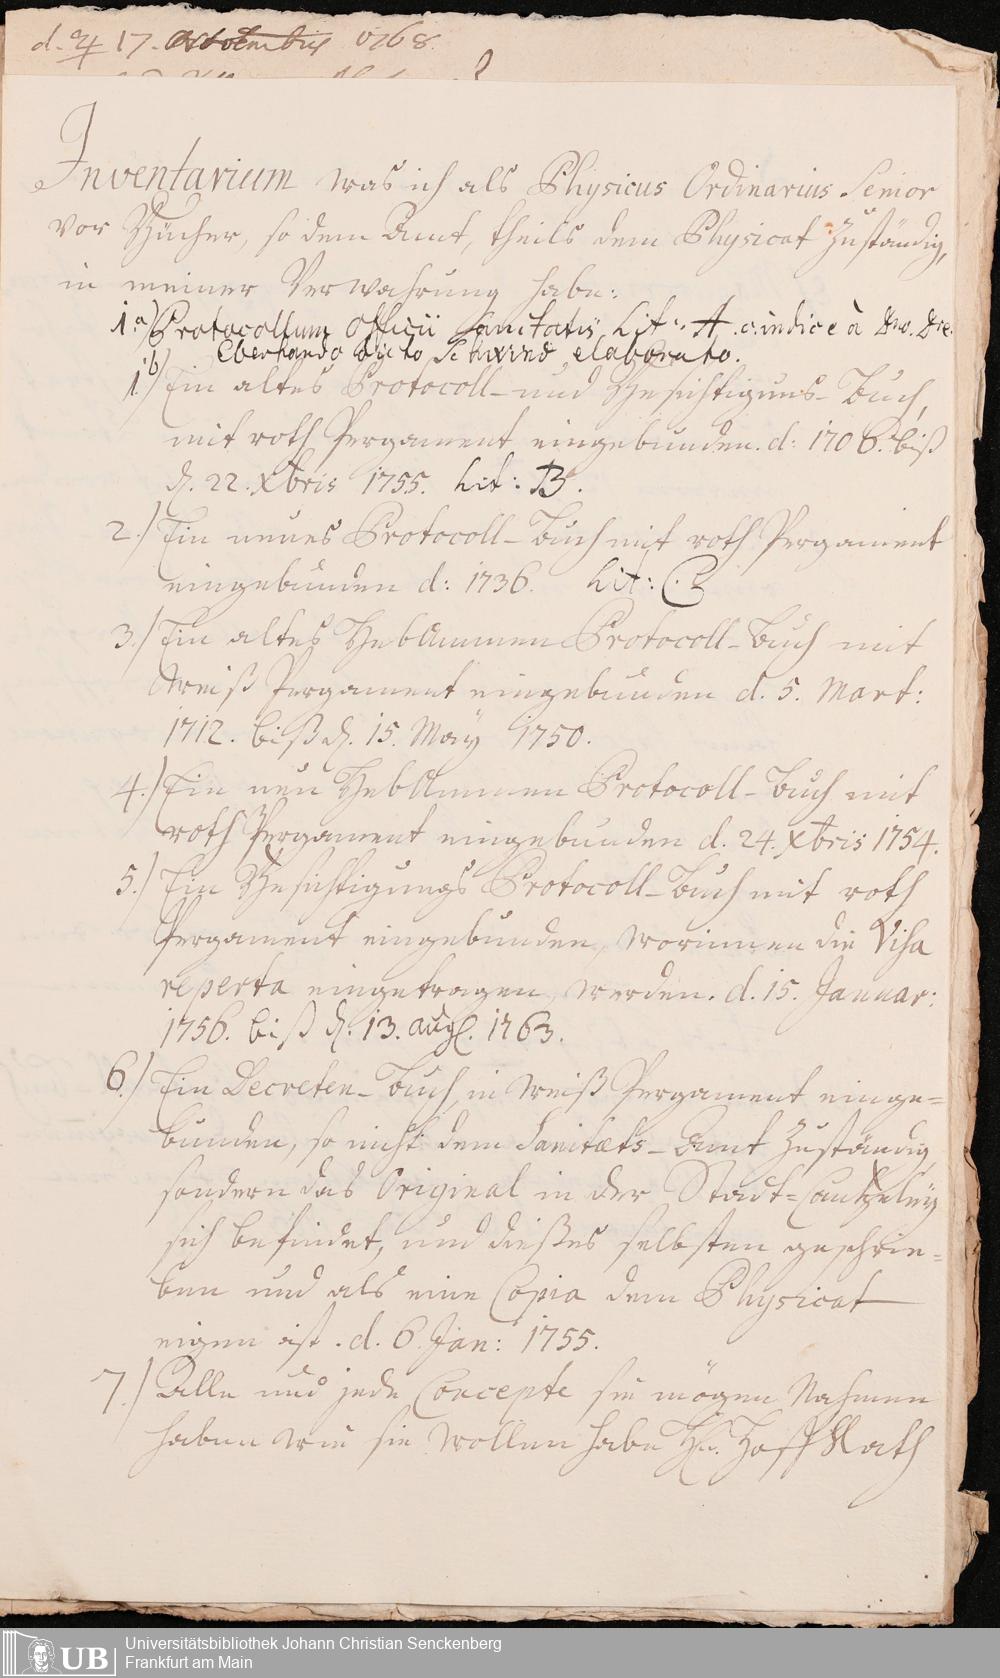 d. ♃ 17. 1768.
Inventarium was ich als Physicus Ordinarius Senior
vor Bücher, so dem Amt, theils dem Physicat zuständig,
in meiner Verwahrung habe:
1.a) Protocollum Officii Sanitatis, Lit. A. c. indice à Dno. Dre.
Eberhardo dicto Schwind elaborato.
1b) Ein altes Protocoll- und Besichtigungs-Buch,
mit roth Pergament eingebunden. d: 1706. biß
d. 22. Xbris 1755. Lit: B.
2.) Ein neues Protocoll-Buch mit roth Pergament
eingebunden d: 1736. Lit: C.
3.) Ein altes HebAmmen Protocoll-Buch mit
Weiß Pergament eingebunden d. 5. Mart:
1712. biß d. 15. Maÿ 1750.
4.) Ein neu HebAmmen Protocoll-Buch mit
roth Pergament eingebunden d. 24. Xbris 1754.
5.) Ein Besichtigungs Protocoll-Buch mit roth
Pergament eingebunden, worinnen die Visa
reperta eingetragen werden. d. 15. Januar:
1756. biß d. 13. Aug. 1763.
6.) Ein Decreten-Buch, in weiß Pergament einge=
bunden, so nicht dem Sanitæts-Amt zuständig
sondern das Original in der Stadt-Cantzeleÿ
sich befindet, und dießes selbsten geschrie=
ben und als eine Copia dem Physicat
eigen ist. d. 6. Jan: 1755.
7.) Alle und jede Concepte sie mögen Nahmen
haben wie sie wollen habe Hn. Hoff Rath
UB
Universitätsbibliothek Johann Christian Senckenberg
Frankfurt am Main